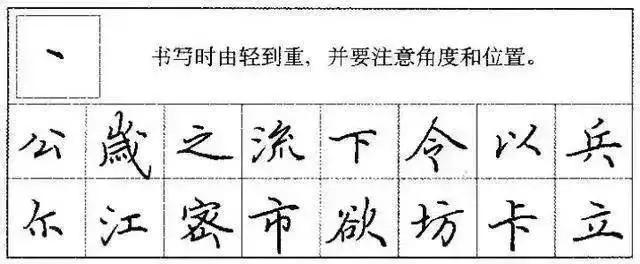 丶
书写时由轻到重，并要注意角度和位置。
公歲之流下令以兵
尔江密市欲坊卡立